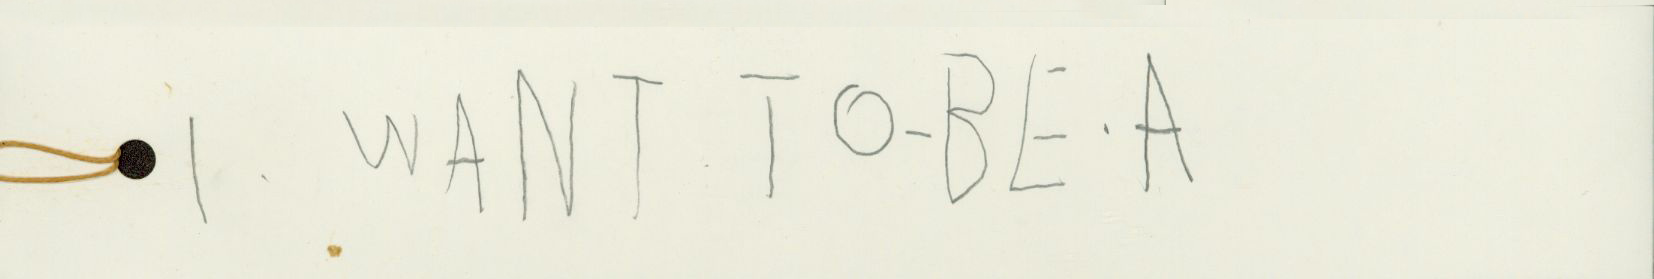 I. WANT TO-BE.A